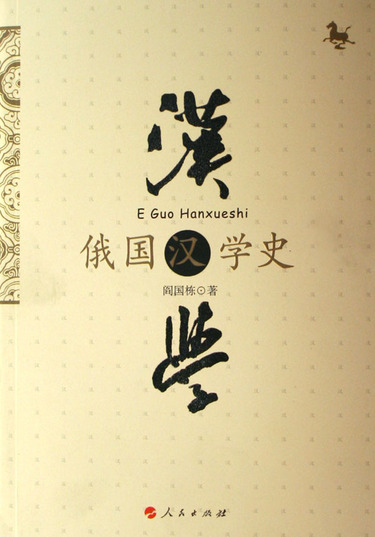 漢
E Guo Hanxueshi
俄国汉学史
阎国栋⊙著
學
人民出版社